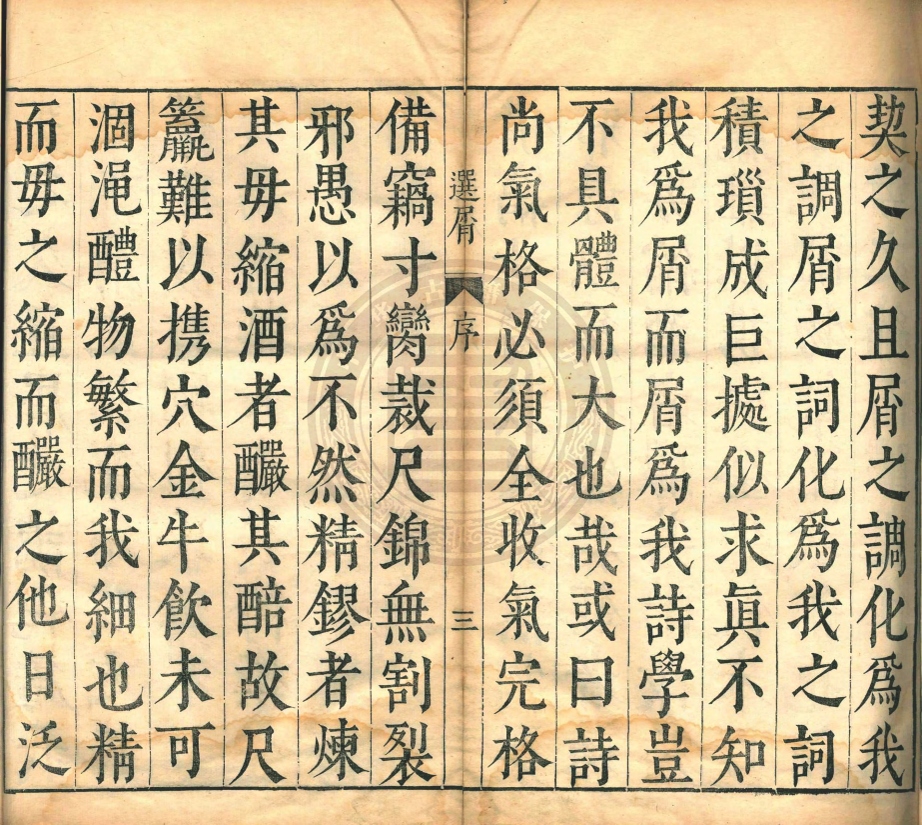 契之久且屑之調化爲我
之調屑之詞化爲我之詞
積瑣成巨據似求眞不知
我爲屑而屑爲我詩學豈
不具體而大也哉或曰詩
尚氣格必須全收氣完格
選屑
序
三
備竊寸臠裁尺錦無割裂
邪愚以爲不然精鏐者煉
其毋縮酒者釅其醅故尺
籯難以携穴金牛飲未可
涸澠醴物繁而我細也精
而毋之縮而釅之他日泛